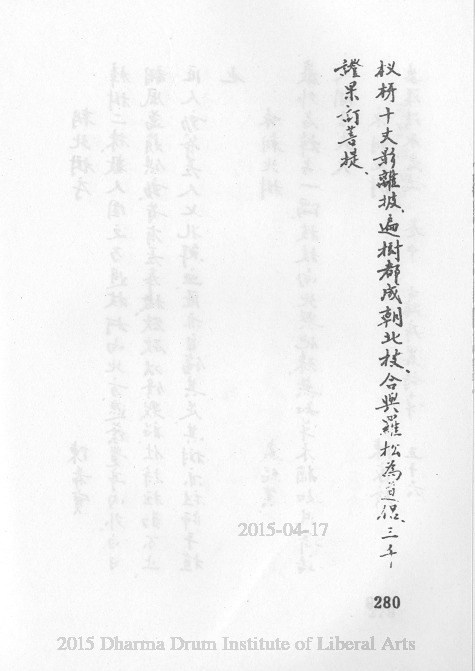 杈枒十丈影離披、遍樹都成朝北枝、合與羅松為道侶、三千
證果訂菩提、
2015-04-17
280
2015 Dharma Drum Institute of Liberal Arts